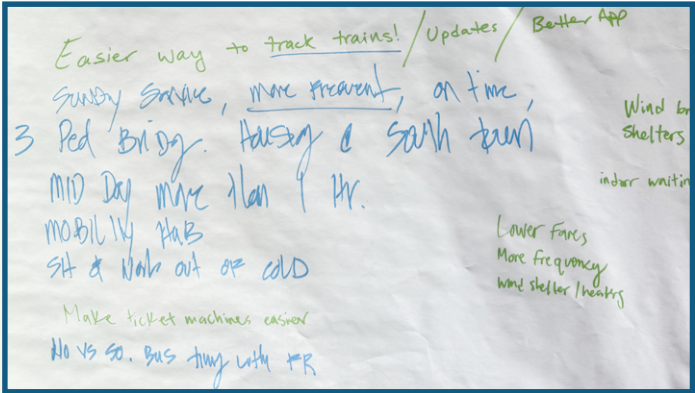 Easier way to track trains! / Updates / Better App
Sunday Service, more frequent, on time,
3 Ped Bridg. Housing @ South town
MID Day more than 1 Hr.
MOBILITY HUB
SH & out of COLD
Make ticket machines easier
No vs So. Bus with
Wind
Shelters
indoor
Lower Fares
More frequency
wind shelter /